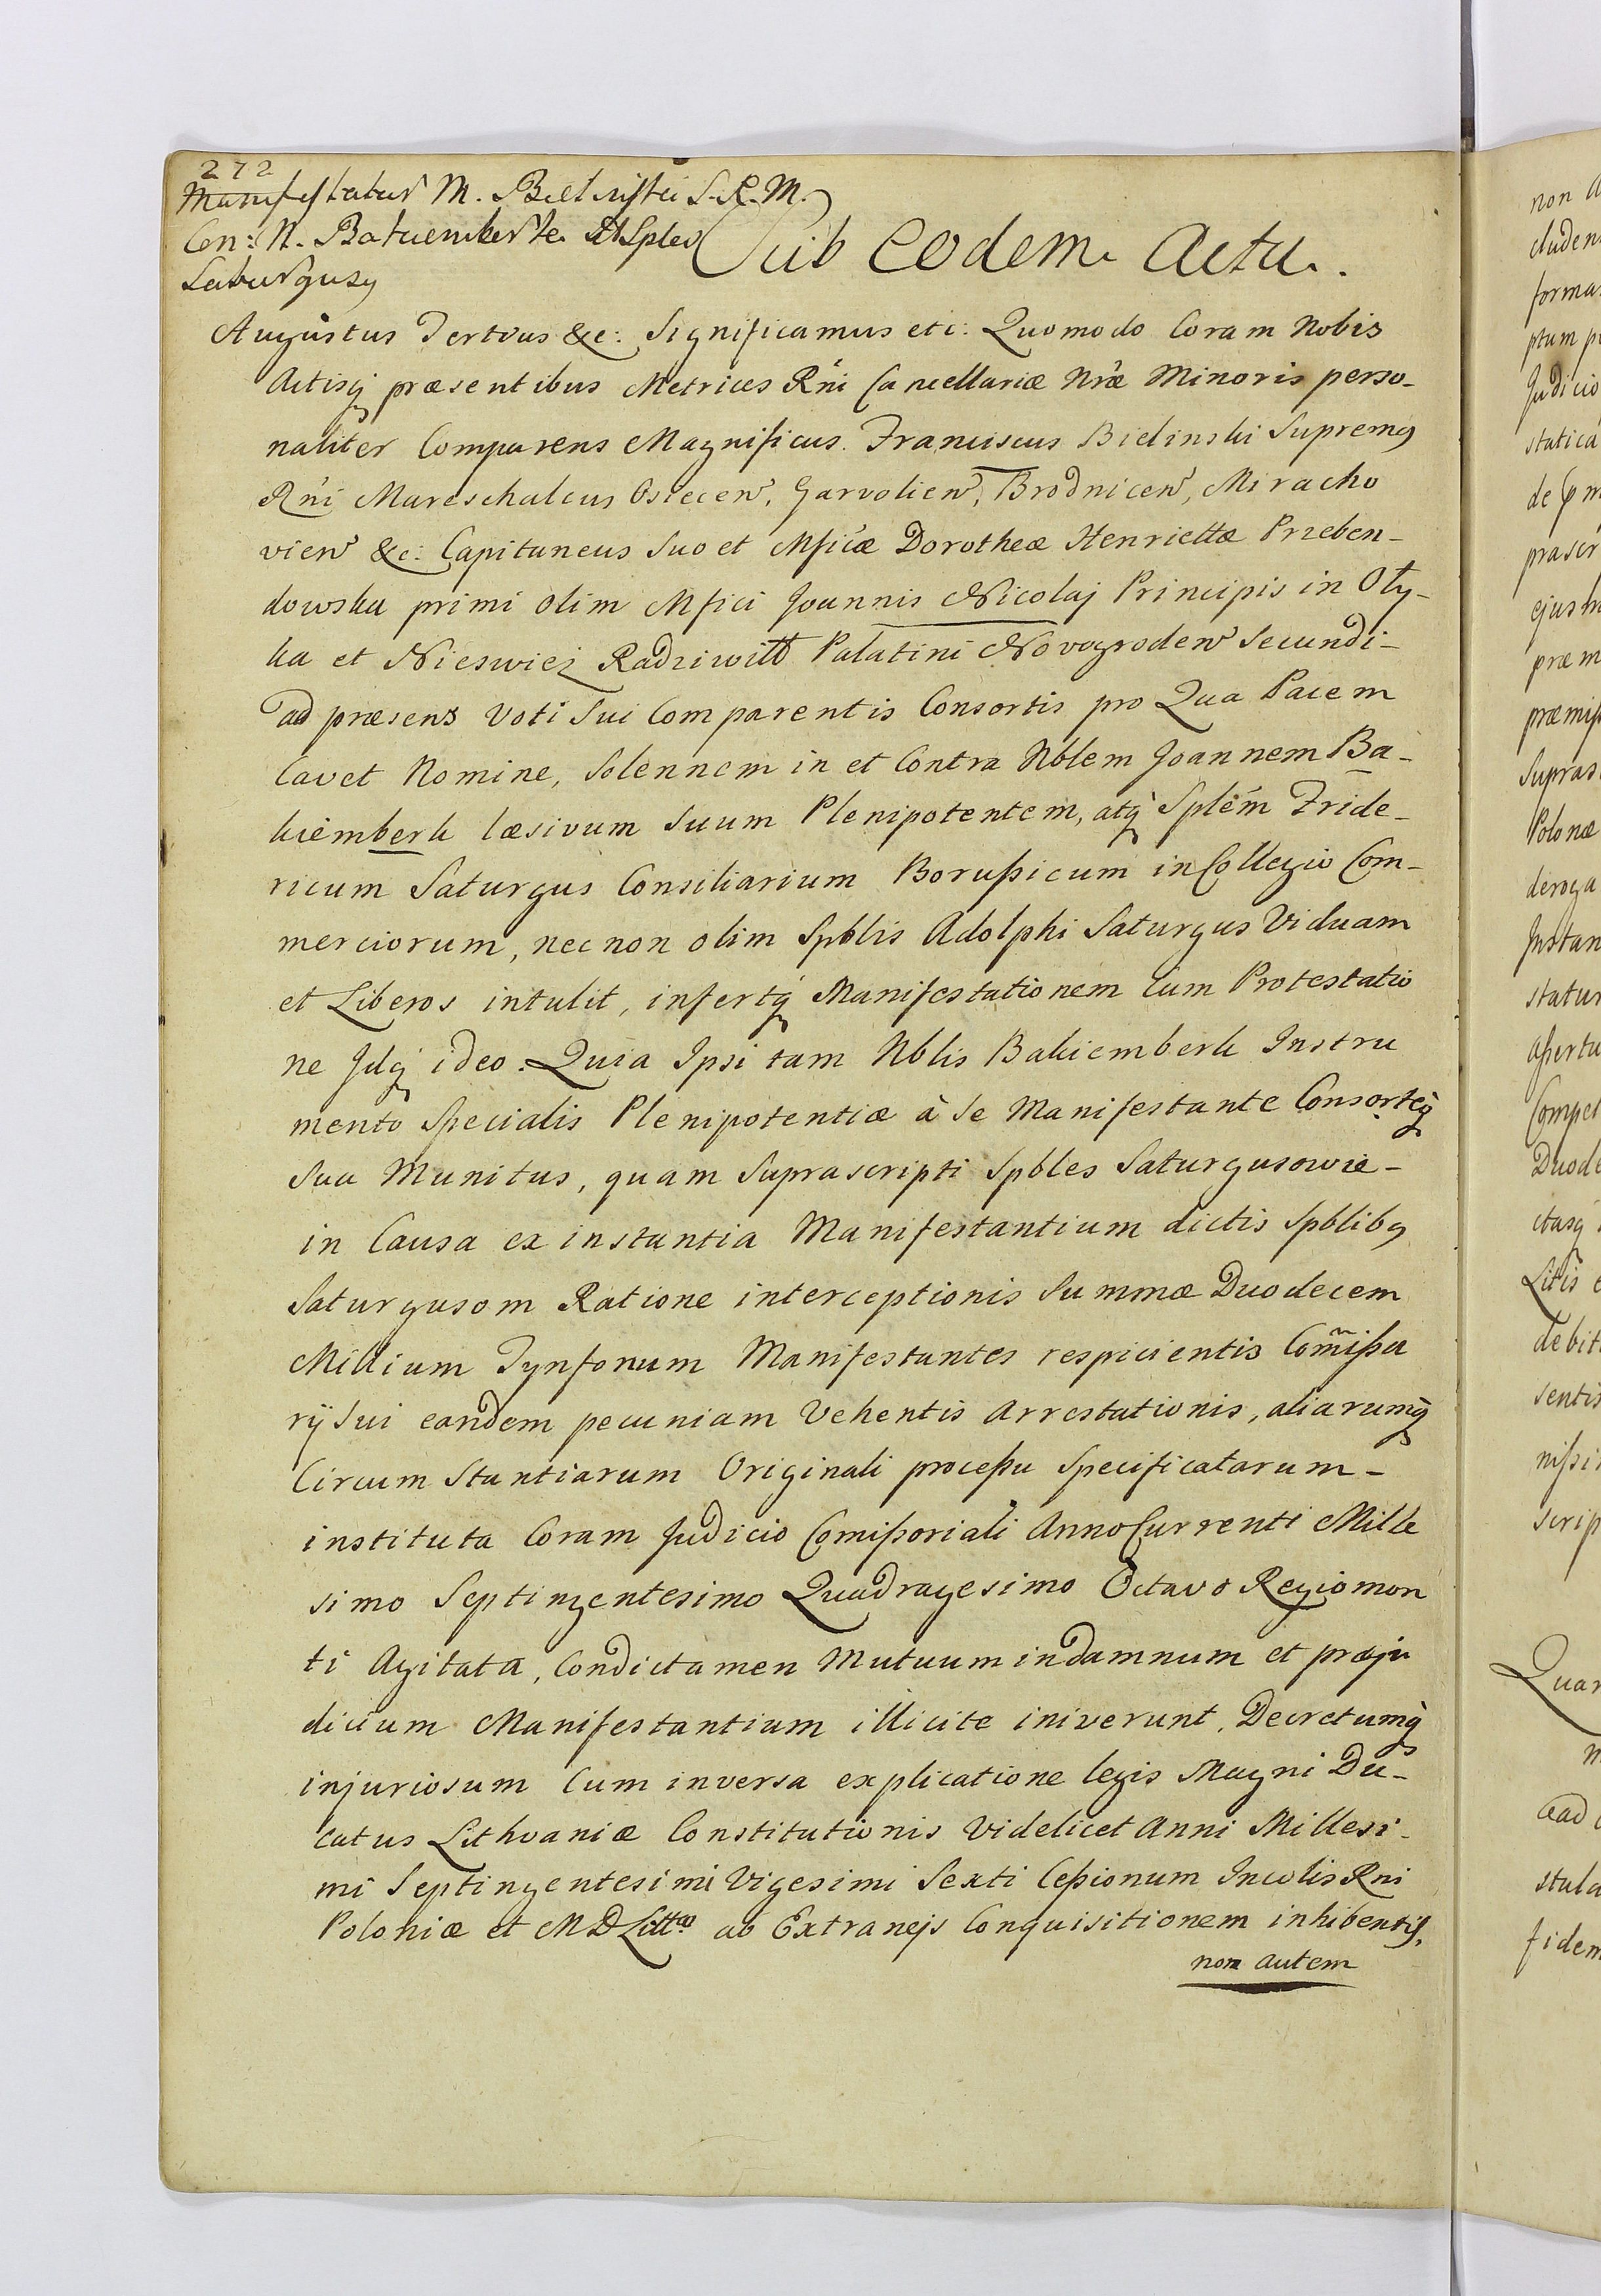 272
Manifestatur M. Bielinski S. R. M.
Con: N. Bakiemberk et Sples
Saturgusy
Sub eodem Actu.
Augustus Tertius &c: Significamus etc: Quomodo Coram Nobis
Actisq̃ præsentibus Metrices Rñi Cancellariæ Nræ Minoris perso-
naliter Comparens Magnificus. Franciscus Bielinski Supremg
Rñi Mareschalcus Osiecen, Garvolien, Brodnicen, Miracho
vien &c: Capitaneus Suo et Mficæ Dorotheæ Henriettæ Przeben-
dowska primi olim Mfici Joannis Nicolaj Principis in Oly-
ka et Nieswiez Radziwitt Palatini Novogroden Secundi-
ad præsens Voti Sui Comparentis Consortis pro Qua Pacem
Cavet Nomine, Solennem in et Contra Nblem Joannem Ba-
kiemberk læsivum Suum Plenipotentem, atq̃ Splem Fride-
ricum Saturgus Consiliarium Borußicum in Collegio Com-
merciorum, nec non olim Spblis Adolphi Saturgus Viduam
et Liberos intulit, infertq̃ Manifestationem Cum Protestatio
ne Jdq̃ ideo. Quia Ipsi tam Nblis Bakiemberk Instru
mento Specialis Plenipotentiæ à Se Manifestante Consorteq̃
Sua Munitus, quam Suprascripti Spbles Saturgusowie-
in Causa ex instantia Manifestantium dictis Spblibg
Saturgusom Ratione interceptionis Summæ Duodecem
Millium Tynfonum Manifestantes respicientis Com̃ißa
rÿ Sui eandem pecuniam Vehentis Arrestationis, aliarumq̃
Circum Stantiarum Originali proceßu Specificatarum-
instituta Coram Judicio Comißoriali Anno Currenti Mille
simo Septingentesimo Quadragesimo Octavo Regiomon
ti Agitata, Condictamen Mutuum in damnum et præju
dicium Manifestantium illicite iniverunt, Decretumq̃
injuriosum Cum inversa explicatione legis Magni Du-
catus Lithvaniæ Constitutionis Videlicet Anni Millesi-
mi Septingentesimi Vigesimi Sexti Ceßionum Incolis Rni
Poloniæ et M D Littæ ab Extranejs Conquisitionem inhibentis,
non autem